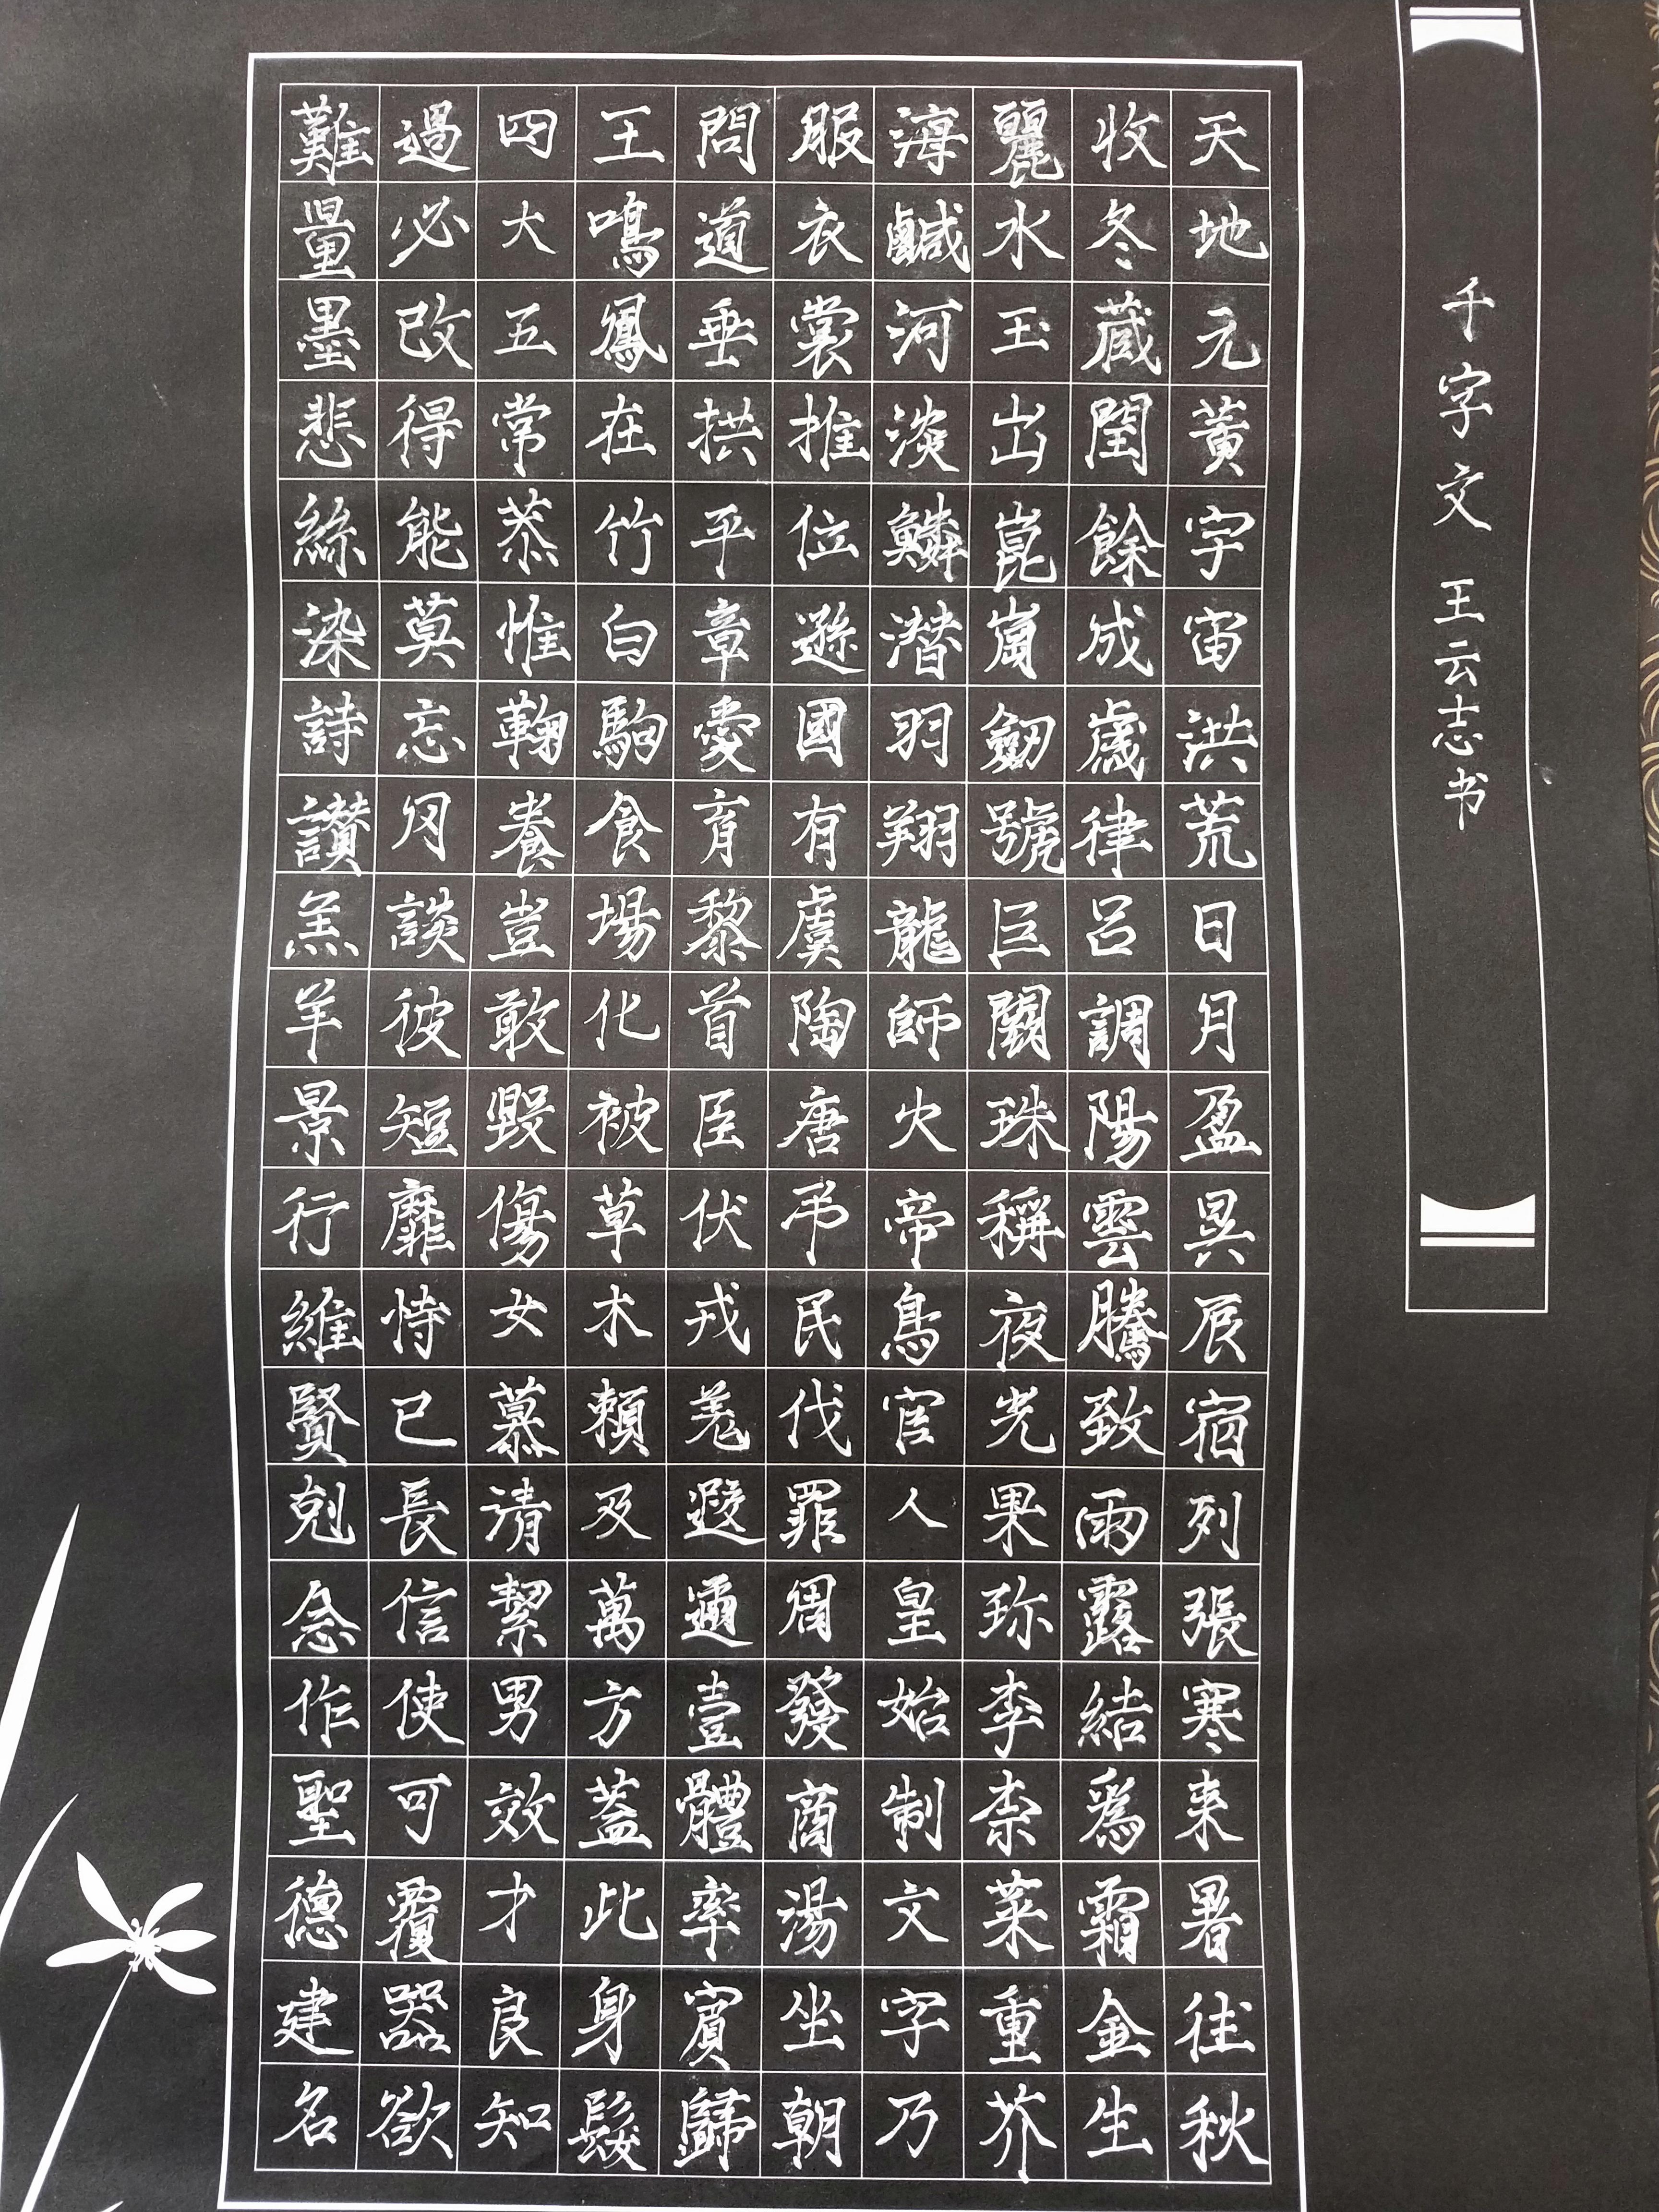 千字文 王云志书
天地元黃宇宙洪荒日月盈昃辰宿列張寒来暑往秋
收冬蔵閏餘成歲律呂調陽雲騰致雨露結爲霜金生
麗水玉出崑崗劒號巨闕珠稱夜光果珎李柰菜重芥
海鹹河淡鱗潛羽翔龍師火帝鳥官人皇始制文字乃
服衣裳推位遜國有虞陶唐弔民伐罪周發商湯坐朝
問道垂拱平章愛育黎首臣伏戎羌遐邇壹體率賓歸
王鳴鳳在竹白駒食場化被草木賴及萬方蓋此身髮
四大五常恭惟鞠養豈敢毀傷女慕清絜男效才良知
過必改得能莫忘罔談彼短靡恃己長信使可覆器欲
難量墨悲絲染詩讚羔羊景行維賢剋念作聖德建名